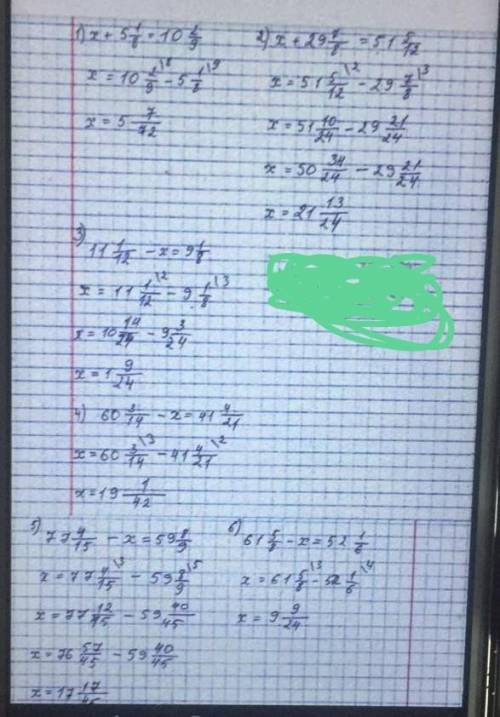 1) x + 5 1/8 = 10 2/9
x = 10 2/9 \8 - 5 1/8 \9
x = 5 7/72
2) x + 29 7/8 = 51 5/12
x = 51 5/12 \2 - 29 7/8 \3
x = 51 10/24 - 29 21/24
x = 50 34/24 - 29 21/24
x = 21 13/24
3) 11 1/12 - x = 9 1/8
x = 11 1/12 \2 - 9 1/8 \3
x = 10 14/24 - 9 3/24
x = 1 9/24
4) 60 3/14 - x = 41 4/21
x = 60 3/14 \3 - 41 4/21 \2
x = 19 1/42
5) 77 4/15 - x = 59 8/9
x = 77 4/15 \3 - 59 8/9 \5
x = 77 12/45 - 59 40/45
x = 76 57/45 - 59 40/45
x = 17 17/45
6) 61 5/8 - x = 52 1/6
x = 61 5/8 \3 - 52 1/6 \4
x = 9 9/24